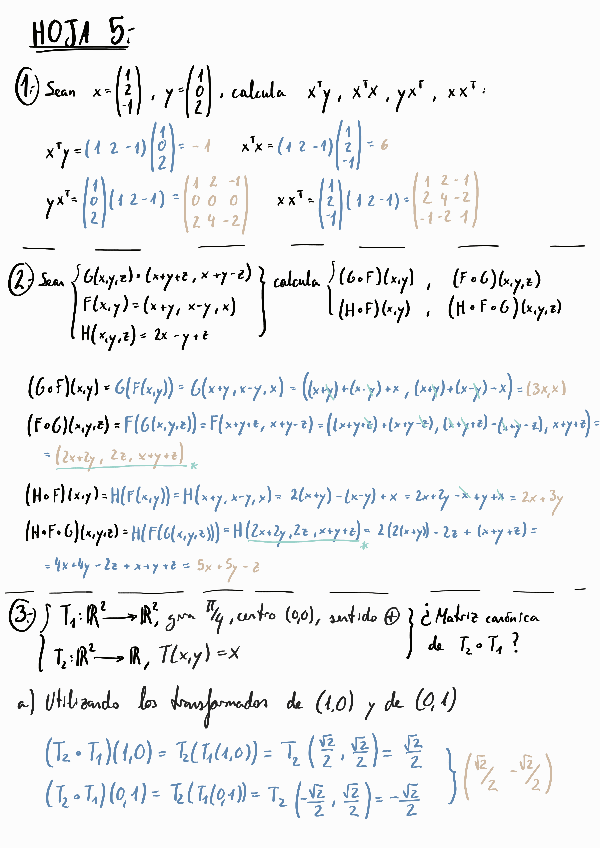 HOJA 5:
1.- Sean x = (1 2 -1), y = (1 0 2), calcula xᵀy, xᵀx, yxᵀ, xxᵀ:
xᵀy = (1 2 -1)(1 0 2) = -1    xᵀx = (1 2 -1)(1 2 -1) = 6
yxᵀ = (1 0 2)(1 2 -1) = (1 2 -1 0 0 0 2 4 -2)    xxᵀ = (1 2 -1)(1 2 -1) = (1 2 -1 2 4 -2 -1 -2 1)
2.- Sean { G(x,y,z) = (x+y+z, x+y-z)
F(x,y) = (x+y, x-y, x)
H(x,y,z) = 2x-y+z } calcula { (G∘F)(x,y), (F∘G)(x,y,z)
(H∘F)(x,y), (H∘F∘G)(x,y,z)
(G∘F)(x,y) = G(F(x,y)) = G(x+y, x-y, x) = ((x+y)+(x-y)+x, (x+y)+(x-y)-x) = (3x,x)
(F∘G)(x,y,z) = F(G(x,y,z)) = F(x+y+z, x+y-z) = ((x+y+z)+(x+y-z), (x+y+z)-(x+y-z), x+y+z) =
= (2x+2y, 2z, x+y+z) *
(H∘F)(x,y) = H(F(x,y)) = H(x+y, x-y, x) = 2(x+y)-(x-y)+x = 2x+2y-x+y+x = 2x+3y
(H∘F∘G)(x,y,z) = H(F(G(x,y,z))) = H(2x+2y, 2z, x+y+z) * = 2(2(x+y))-2z+(x+y+z) =
= 4x+4y-2z+x+y+z = 5x+5y-z
3.- { T₁: ℝ² → ℝ², gira π/4, centro (0,0), sentido ⊕
T₂: ℝ² → ℝ, T(x,y) = x } ¿Matriz canónica
de T₂∘T₁?
a) Utilizando los transformados de (1,0) y de (0,1)
(T₂∘T₁)(1,0) = T₂(T₁(1,0)) = T₂(√2/2, √2/2) = √2/2
(T₂∘T₁)(0,1) = T₂(T₁(0,1)) = T₂(-√2/2, √2/2) = -√2/2 } (√2/2 -√2/2)